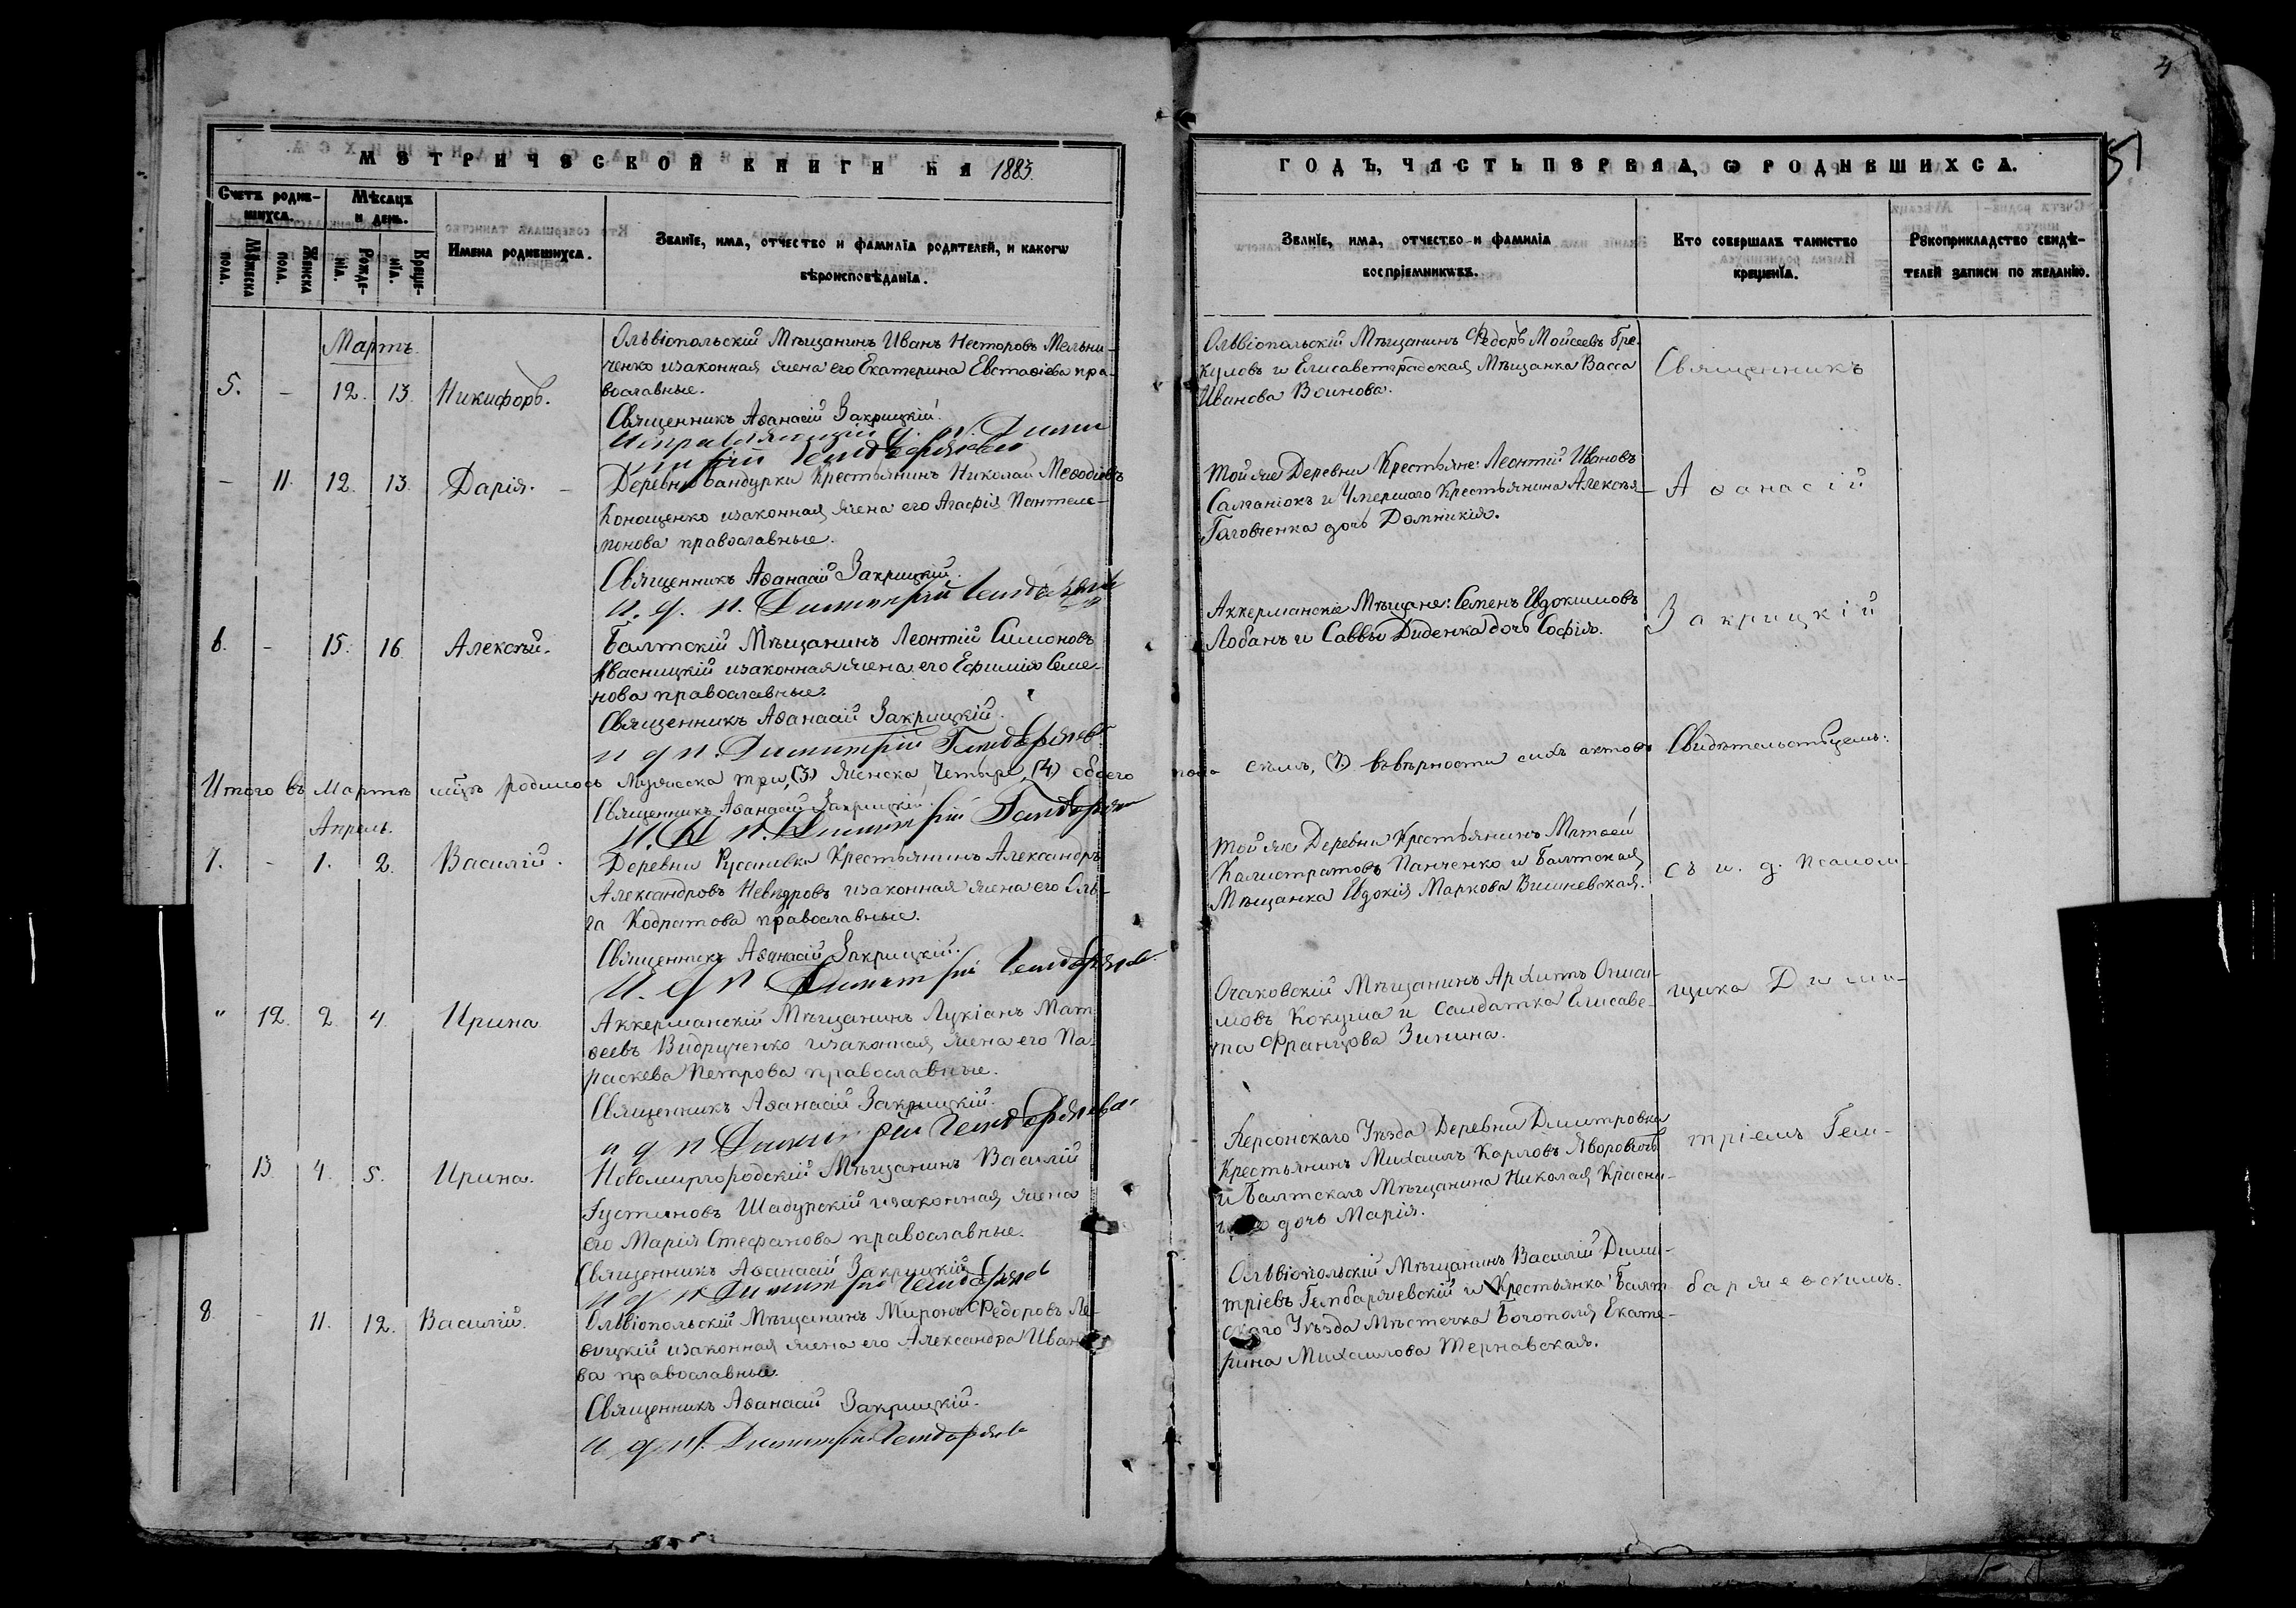 МЕТРИЧЕСКОЙ КНИГИ НА 1883.
Счетъ родившихся.
Мѣсяцъ и день.
Мужеска пола.
Женска пола.
Рожденія.
Крещенія.
Имена родившихся.
Званіе, имя, отчество и фамилія родителей, и какого
вѣроисповѣданія.
Мартъ.
5. - 12. 13. Никифоръ.
Ольвіопольскій Мѣщанинъ Иванъ Несторовъ Мельни-
ченко изаконная жена его Екатерина Евстафіева пра-
вославные.
Священникъ Аѳанасій Закрицкій.
- 11. 12. 13. Дарія. -
Деревни Бандурки Крестьянинъ Николай Меѳодіевъ
Конощенко изаконная жена его Агафія Пантеле-
монова православные.
Священникъ Аѳанасій Закрицкій.
и. д. п. Димитрій
6. - 15. 16. Алексѣй.
Балтскій Мѣщанинъ Леонтій Симоновъ
Квасницкій изаконная жена его Ефимія Семе-
нова православные.
Священникъ Аѳанасій Закрицкій.
и д п. Димитрій
Итого въ Мартѣ мцѣ родилось Мужеска три, (3) женска Четыре, (4) обоего пола семь, (7) Въ вѣрности сихъ актовъ Свидѣтельствуемъ:
Священникъ Аѳанасій Закрицкій.
И. д. п. Димитрій
Апрель.
7. - 1. 2. Василій.
Деревни Русановки Крестьянинъ Александръ
Александровъ изаконная жена его Оль-
га Кодратова православные.
Священникъ Аѳанасій Закрицкій.
И. д п Димитрій
" 12. 2. 4. Ирина
Аккерманскій Мѣщанинъ Лукіанъ Мат-
ѳеевъ изаконная жена его Па-
раскева Петрова православные.
Священникъ Аѳанасій Закрицкій.
и д п Димитрій
13. 4. 5. Ирина.
Новомиргородскій Мѣщанинъ Василій
Іустиновъ Шадурскій изаконная жена
его Марія Стефанова православные.
Священникъ Аѳанасій Закрицкій
и д п Димитрій
8. - 11. 12. Василій.
Ольвіопольскій Мѣщанинъ Миронъ Федоровъ
изаконная жена его Александра Ивано-
ва православные.
Священникъ Аѳанасій Закрицкій.
и д п. Димитрій
4
5
ГОДЪ, ЧАСТЬ ПЕРВАЯ, О РОДИВШИХСЯ.
Званіе, имя, отчество и фамилія
воспріемниковъ.
Кто совершалъ таинство
крещенія.
Рукоприкладство свидѣ-
телей записи по желанію.
Ольвіопольскій Мѣщанинъ Федоръ Мойсеевъ Гре-
куловъ и Елисаветградская Мѣщанка Васса
Иванова Воинова.
Той же Деревни Крестьяне: Леонтій Ивановъ
Саманіокъ и Умершаго Крестьянина Алексѣя
дочь Домникія.
Аккерманскіе Мѣщане: Семенъ Евдокимовъ
Лобанъ и Саввы Диденка дочь Софія.
Той же Деревни Крестьянинъ Матѳей
Калистратовъ Панченко и Балтская
Мѣщанка Евдокія Маркова Вишневская.
Очаковскій Мѣщанинъ Архипъ Ониси-
мовъ Кокуша и Салдатка Елисаве-
та Францова Зинина.
Херсонскаго Уѣзда Деревни Димитровки
Крестьянинъ Михаилъ Карловъ Яворовичъ
и Балтскаго Мѣщанина Николая
дочь Марія.
Ольвіопольскій Мѣщанинъ Василій Дими-
тріевъ Гембаржевскій и Крестьянка Балт-
скаго Уѣзда Мѣстечка Богополя Екате-
рина Михаилова Тернавская.
Священникъ
Аѳанасій
Закрицкій
съ и. д. Псалом-
щика Дими-
тріемъ Гем-
баржевскимъ.